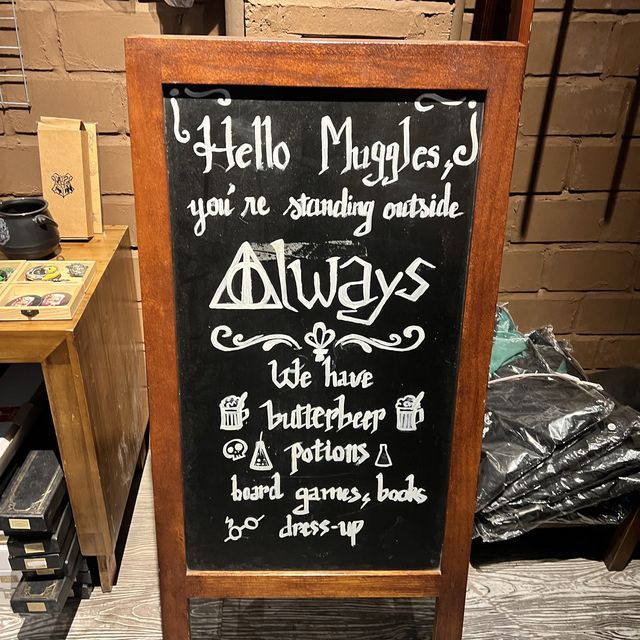 Hello Muggles,
you're standing outside
Always
We have
butterbeer
potions
board games, books
dress-up